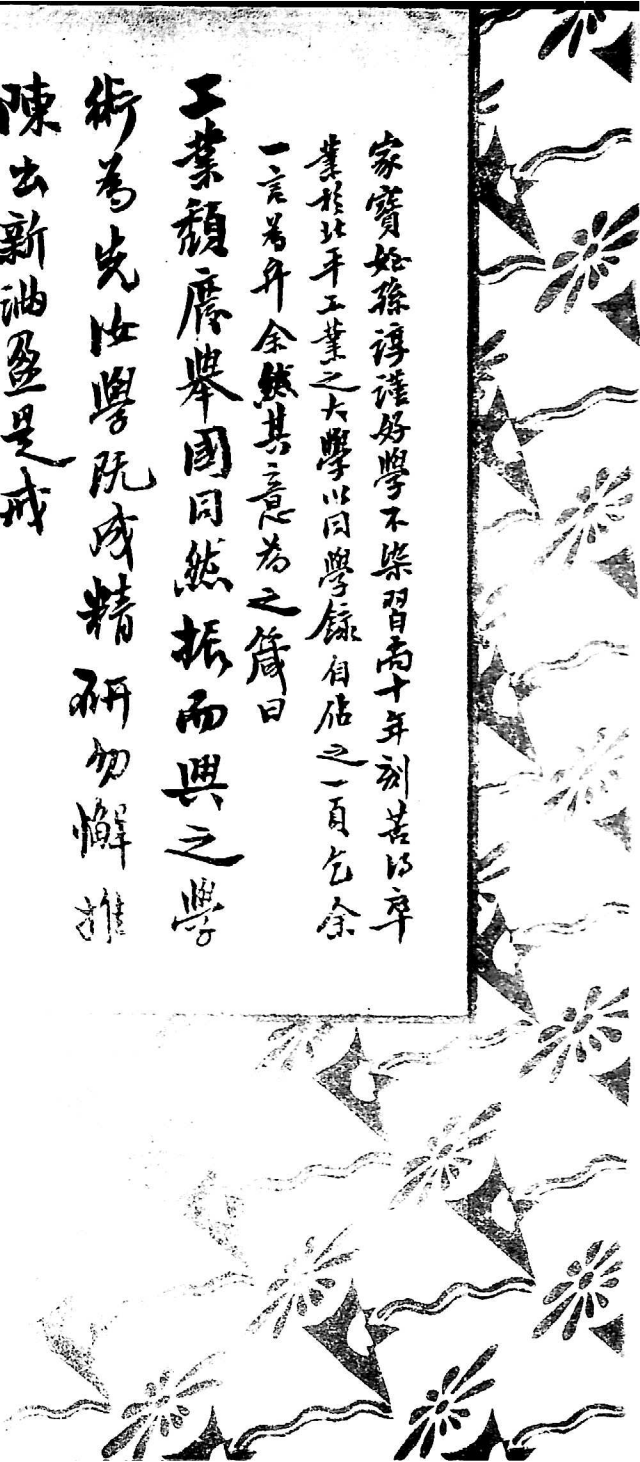 家寶姪孫諄謹好學不染習尚十年刻苦得卒
業於北平工業之大學以同學錄自佔之一頁乞余
一言為弁余然其意為之箴曰
工業頹廢舉國同然振而興之學
術為先汝學既成精研勿懈推
陳出新滿盈是戒